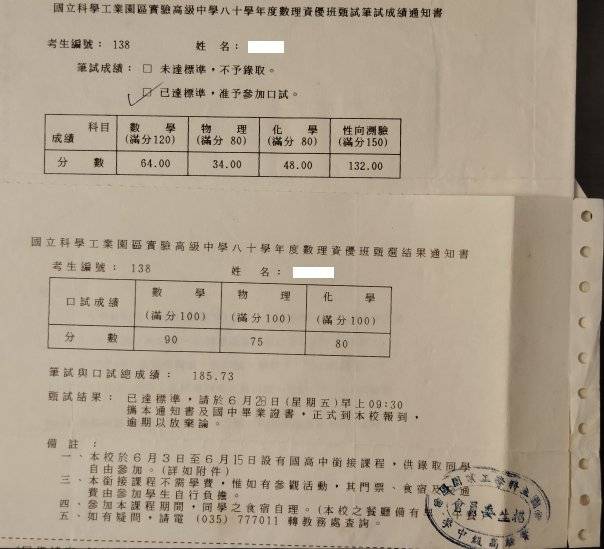 國立科學工業園區實驗高級中學八十學年度數理資優班甄試筆試成績通知書
考生編號： 138 姓 名：
筆試成績： □ 未達標準，不予錄取。
□ 已達標準，准予參加口試。
科目 成績 數 學 (滿分120) 物 理 (滿分 80) 化 學 (滿分 80) 性向測驗 (滿分150)
分 數 64.00 34.00 48.00 132.00
國立科學工業園區實驗高級中學八十學年度數理資優班甄選結果通知書
考生編號： 138 姓 名：
口試成績 數 學 (滿分100) 物 理 (滿分100) 化 學 (滿分100)
分 數 90 75 80
筆試與口試總成績： 185.73
甄試結果： 已達標準，請於6月28日(星期五)早上09:30
攜本通知書及國中畢業證書，正式到本校報到，
逾期以放棄論。
備 註 ：
一、本校於6月3日至6月15日設有國高中銜接課程，供錄取同學
自由參加。(詳如附件)
三、本銜接課程不需學費，惟如有參觀活動，其門票、食宿及交通
費由參加學生自行負擔。
四、參加本課程期間，同學之食宿自理。(本校之餐廳備有
五、如有疑問，請電 (035) 777011 轉教務處查詢。
招生委員會